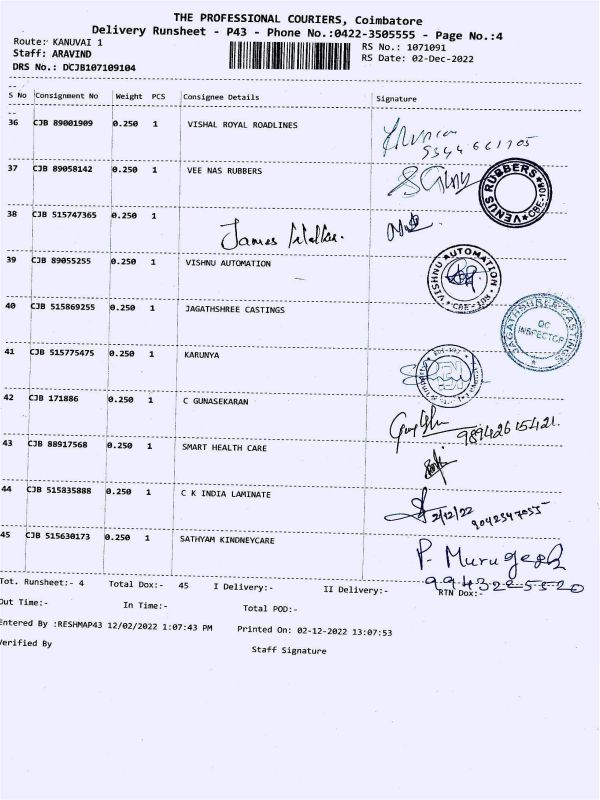 THE PROFESSIONAL COURIERS, Coimbatore
Delivery Runsheet - P43 - Phone No.:0422-3505555 - Page No.:4
Route: KANUVAI 1
RS No.: 1071091
Staff: ARAVIND
RS Date: 02-Dec-2022
DRS No.: DCJB107109104
S No Consignment No Weight PCS Consignee Details Signature
36 CJB 89001909 0.250 1 VISHAL ROYAL ROADLINES
37 CJB 89058142 0.250 1 VEE NAS RUBBERS
VENUS RUBBERS
38 CJB 515747365 0.250 1
James
39 CJB 89055255 0.250 1 VISHNU AUTOMATION
VISHNU AUTOMATION
40 CJB 515869255 0.250 1 JAGATHSHREE CASTINGS
JAGATHSHREE CASTINGS
DC
INSPECTOR
41 CJB 515775475 0.250 1 KARUNYA
42 CJB 171886 0.250 1 C GUNASEKARAN
98942615421.
43 CJB 88917568 0.250 1 SMART HEALTH CARE
44 CJB 515835888 0.250 1 C K INDIA LAMINATE
2/12/22
9042347055
45 CJB 515630173 0.250 1 SATHYAM KINDNEYCARE
P. Murugesh
9943225520
Tot. Runsheet:- 4 Total Dox:- 45 I Delivery:- II Delivery:- RTN Dox:-
Out Time:- In Time:- Total POD:-
Entered By :RESHMAP43 12/02/2022 1:07:43 PM Printed On: 02-12-2022 13:07:53
Verified By Staff Signature